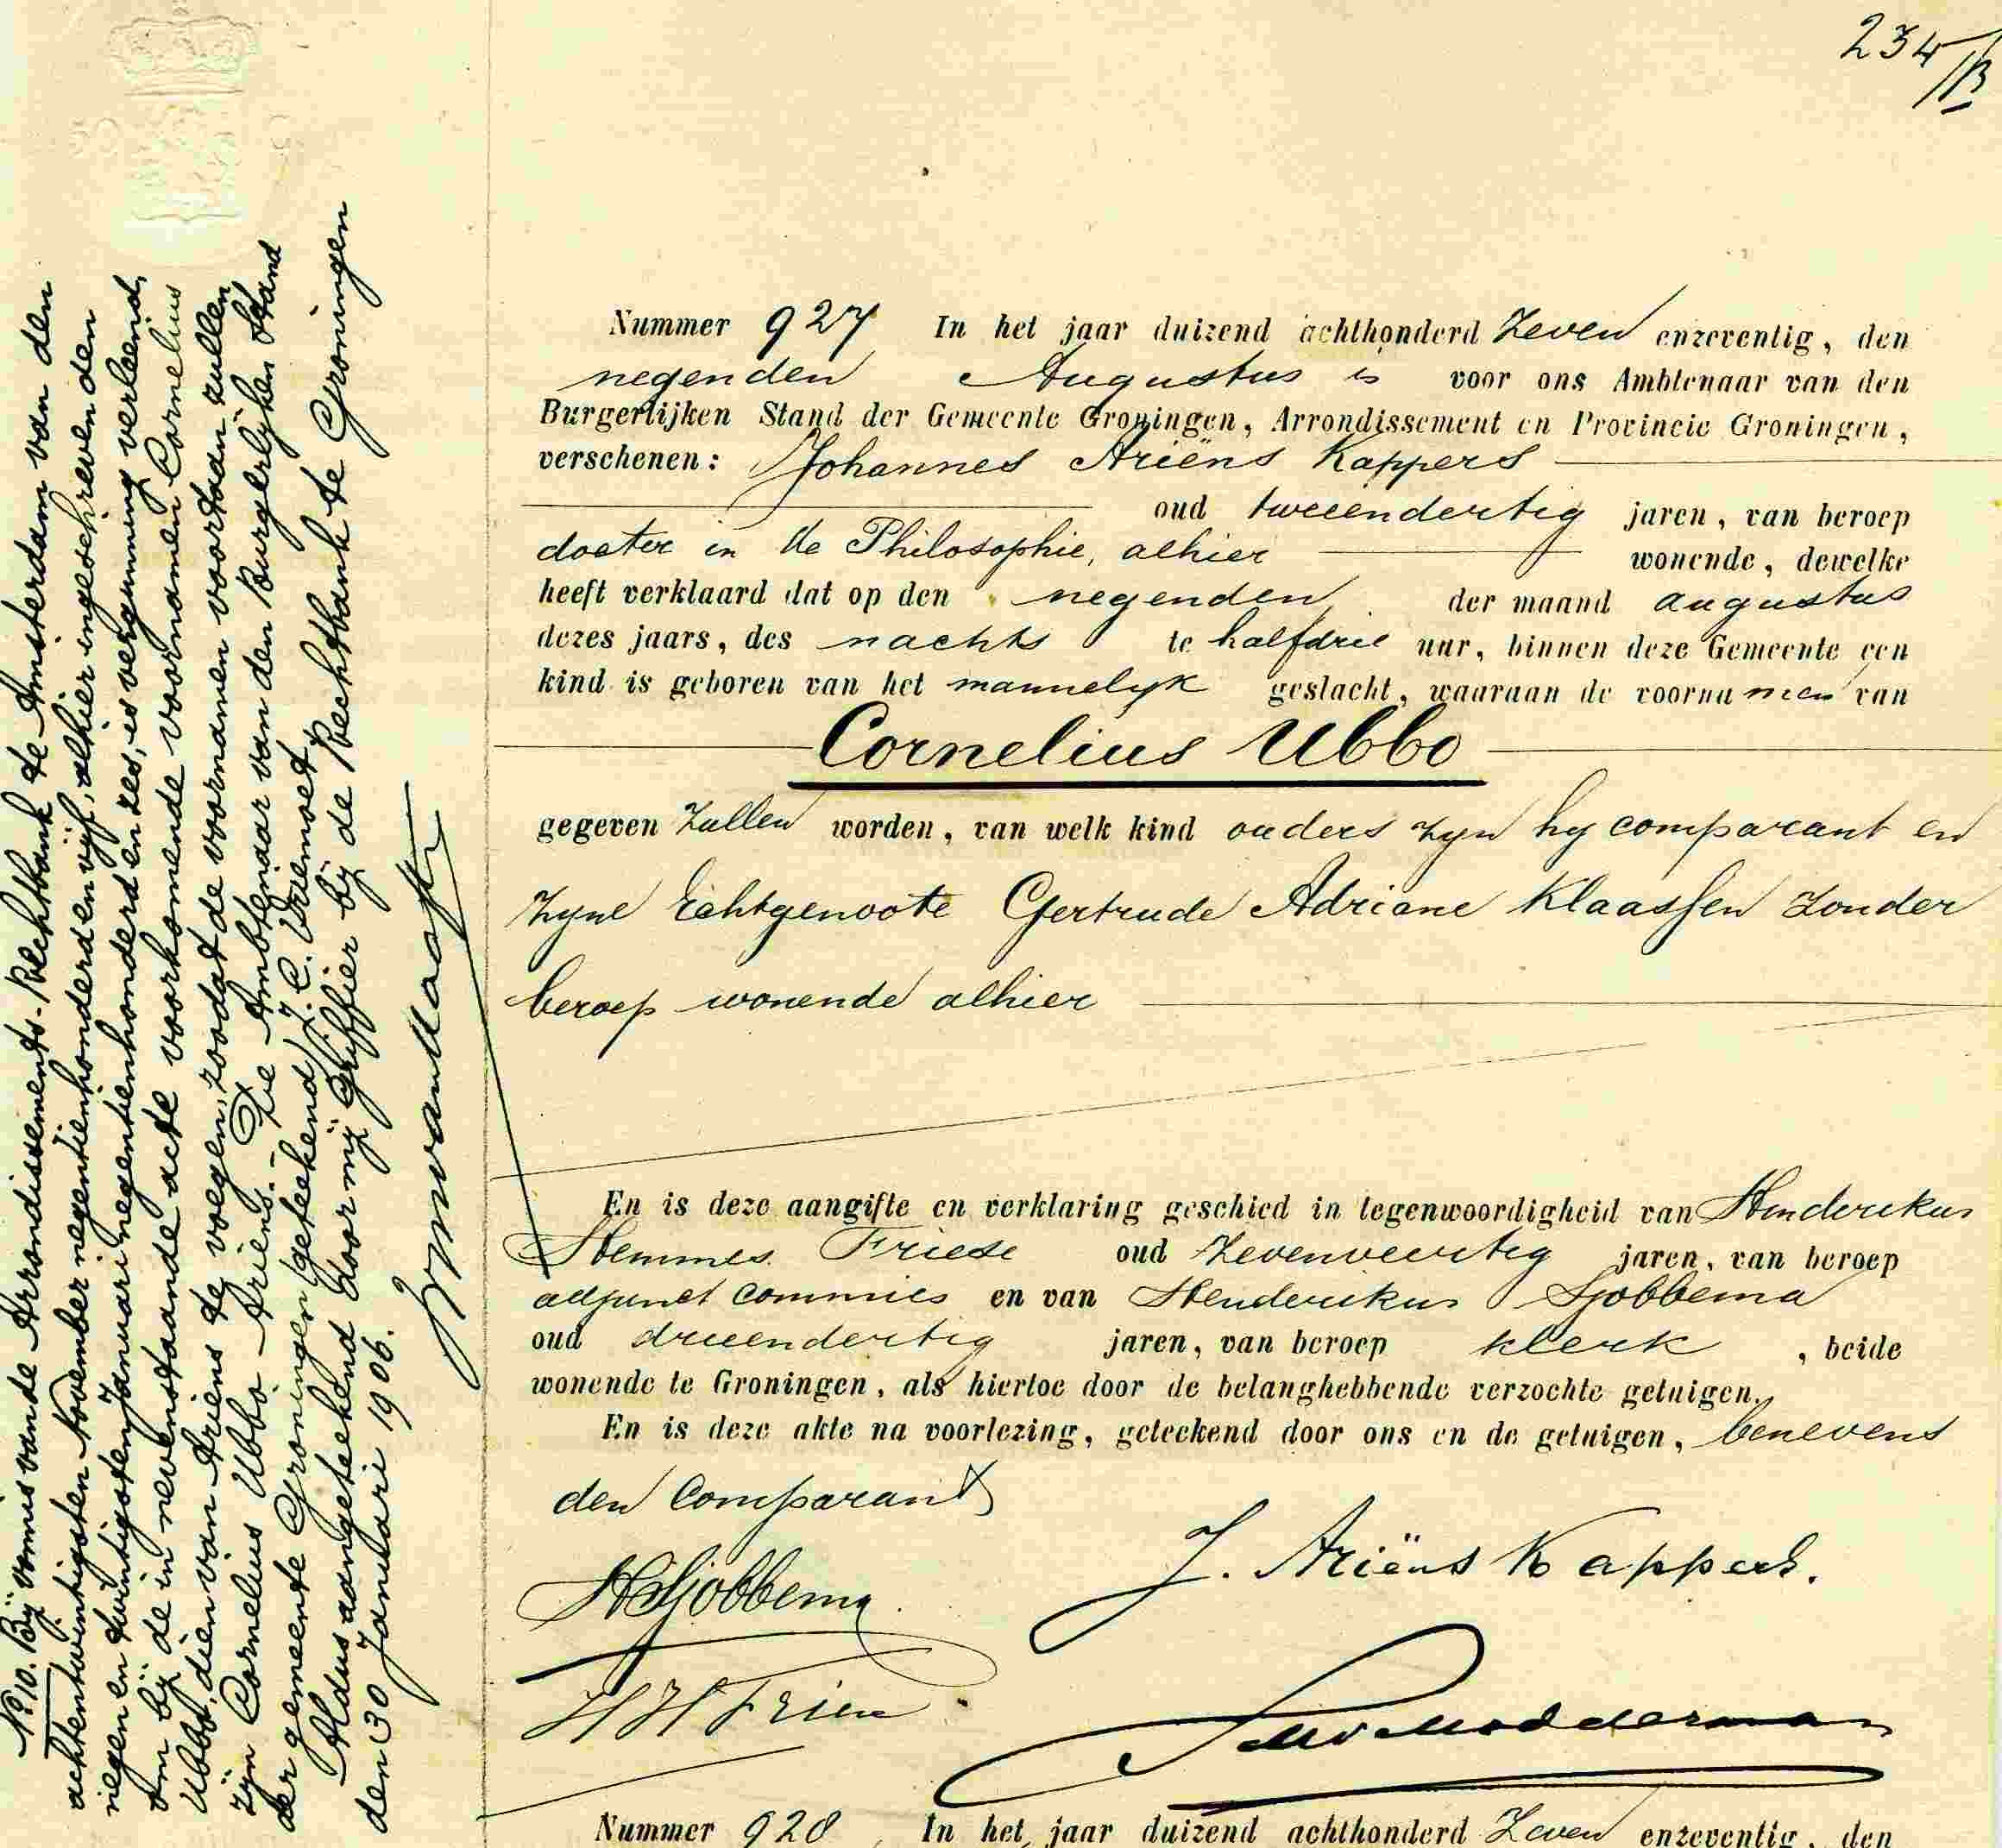 234/B
Nummer 927 In het jaar duizend achthonderd Zeven enzeventig, den
negenden Augustus is voor ons Ambtenaar van den
Burgerlijken Stand der Gemeente Groningen, Arrondissement en Provincie Groningen,
verschenen: Johannes Ariëns Kappers
oud tweeendertig jaren, van beroep
doctor in de Philosophie, alhier wonende, dewelke
heeft verklaard dat op den negenden der maand augustus
dezes jaars, des nachts te halfdrie uur, binnen deze Gemeente een
kind is geboren van het mannelijk geslacht, waaraan de voornamen van
Cornelius Ubbo
gegeven Zullen worden, van welk kind ouders zyn hy comparant en
zyne Echtgenoote Gertrude Adriane Klaassen Zonder
beroep wonende alhier
En is deze aangifte en verklaring geschied in tegenwoordigheid van Henderikus
Hemmes Friese oud Zevenveertig jaren, van beroep
adjunct Commies en van Henderikus Sjobbema
oud drieendertig jaren, van beroep klerk, beide
wonende te Groningen, als hiertoe door de belanghebbende verzochte getuigen.
En is deze akte na voorlezing, geteekend door ons en de getuigen, benevens
den Comparant
J. Ariëns Kappers.
HSjobbema.
HH Friese
Modderman
Nummer 928, In het jaar duizend achthonderd Zeven enzeventig, den
No 10. Bij vonnis van de Arrondissements-Rechtbank te Amsterdam van den
achtentwintigsten November negentienhonderd en vijf, alhier ingeschreven den
negen en twintigsten Januari negentienhonderd en zes, is vergunning verleend,
om bij de in nevenstaande acte voorkomende voornamen Cornelius
Ubbo, dien van Ariëns te voegen, zoodat de voornamen voortaan zullen
zijn Cornelius Ubbo Ariëns.- De Ambtenaar van den Burgerlijken Stand
der gemeente Groningen (geteekend) J. C. Vriemoet.
Aldus aangeteekend door mij Griffier bij de Rechtbank te Groningen
den 30 Januari 1906.